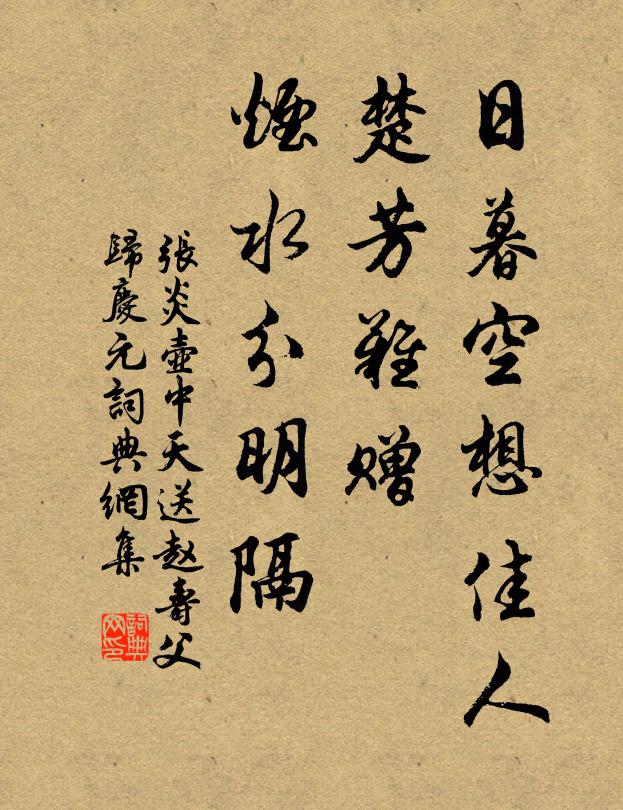 日暮空想佳人
楚芳難赠
煙水分明隔
張炎壺中天送赵壽父
歸慶元詞典網集
詞典网印